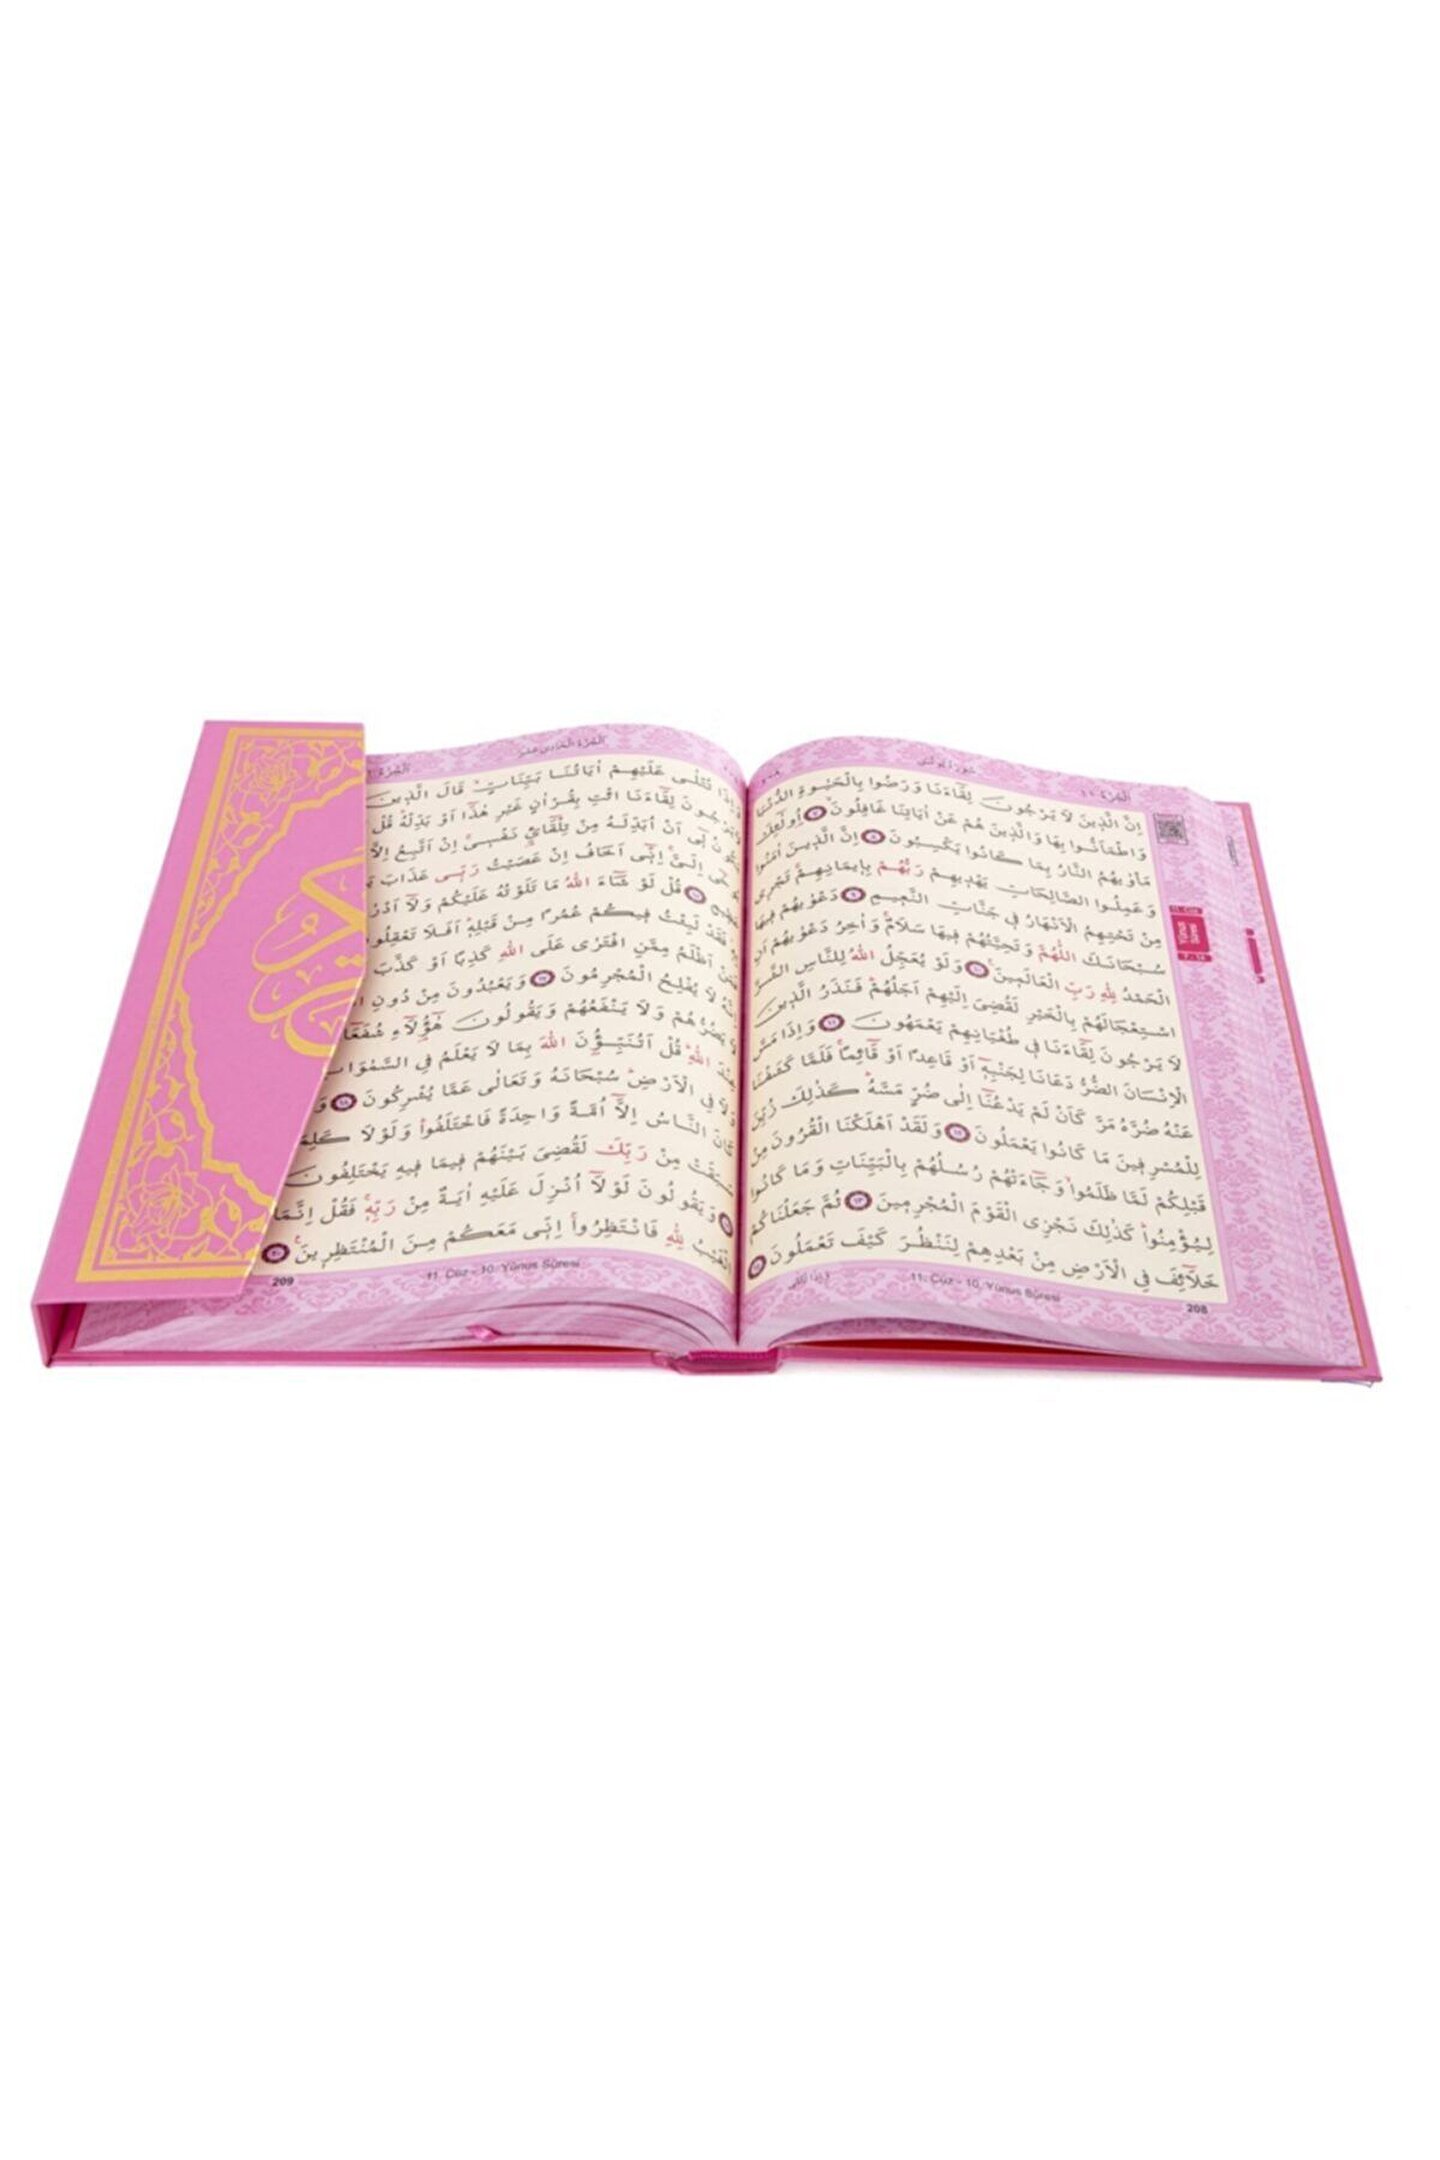 سُورَةُ يُونُسَ
اِنَّ الَّذ۪ينَ لَا يَرْجُونَ لِقَٓاءَنَا وَرَضُوا بِالْحَيٰوةِ الدُّنْيَا
وَاطْمَاَنُّوا بِهَا وَالَّذ۪ينَ هُمْ عَنْ اٰيَاتِنَا غَافِلُونَ ﴿٧﴾ اُو۬لٰٓئِكَ
مَاْوٰيهُمُ النَّارُ بِمَا كَانُوا يَكْسِبُونَ ﴿٨﴾ اِنَّ الَّذ۪ينَ اٰمَنُوا
وَعَمِلُوا الصَّالِحَاتِ يَهْد۪يهِمْ رَبُّهُمْ بِا۪يمَانِهِمْ تَجْر۪ي
مِنْ تَحْتِهِمُ الْاَنْهَارُ ف۪ي جَنَّاتِ النَّع۪يمِ ﴿٩﴾ دَعْوٰيهُمْ ف۪يهَا
سُبْحَانَكَ اللّٰهُمَّ وَتَحِيَّتُهُمْ ف۪يهَا سَلَامٌ وَاٰخِرُ دَعْوٰيهُمْ اَنِ
الْحَمْدُ لِلّٰهِ رَبِّ الْعَالَم۪ينَ ﴿١٠﴾ وَلَوْ يُعَجِّلُ اللّٰهُ لِلنَّاسِ الشَّرَّ
اسْتِعْجَالَهُمْ بِالْخَيْرِ لَقُضِيَ اِلَيْهِمْ اَجَلُهُمْ فَنَذَرُ الَّذ۪ينَ
لَا يَرْجُونَ لِقَٓاءَنَا ف۪ي طُغْيَانِهِمْ يَعْمَهُونَ ﴿١١﴾ وَاِذَا مَسَّ
الْاِنْسَانَ الضُّرُّ دَعَانَا لِجَنْبِه۪ٓ اَوْ قَاعِدًا اَوْ قَٓائِمًا فَلَمَّا كَشَفْنَا
عَنْهُ ضُرَّهُ مَرَّ كَاَنْ لَمْ يَدْعُنَٓا اِلٰى ضُرٍّ مَسَّهُ كَذٰلِكَ زُيِّنَ
لِلْمُسْرِف۪ينَ مَا كَانُوا يَعْمَلُونَ ﴿١٢﴾ وَلَقَدْ اَهْلَكْنَا الْقُرُونَ مِنْ
قَبْلِكُمْ لَمَّا ظَلَمُوا وَجَٓاءَتْهُمْ رُسُلُهُمْ بِالْبَيِّنَاتِ وَمَا كَانُوا
لِيُؤْمِنُوا كَذٰلِكَ نَجْزِي الْقَوْمَ الْمُجْرِم۪ينَ ﴿١٣﴾ ثُمَّ جَعَلْنَاكُمْ
خَلَٓائِفَ فِي الْاَرْضِ مِنْ بَعْدِهِمْ لِنَنْظُرَ كَيْفَ تَعْمَلُونَ ﴿١٤﴾
208 11. Cüz - 10. Yûnus Sûresi
11. Cüz
Yûnus
Sûresi
7 - 14
وَاِذَا تُتْلٰى عَلَيْهِمْ اٰيَاتُنَا بَيِّنَاتٍ قَالَ الَّذ۪ينَ
يَرْجُونَ لِقَٓاءَنَا ائْتِ بِقُرْاٰنٍ غَيْرِ هٰذَٓا اَوْ بَدِّلْهُ قُلْ
يَكُونُ ل۪ٓي اَنْ اُبَدِّلَهُ مِنْ تِلْقَٓائِ۬ نَفْس۪ي اِنْ اَتَّبِعُ اِلَّا
يُوحٰٓى اِلَيَّ اِنّ۪ٓي اَخَافُ اِنْ عَصَيْتُ رَبّ۪ي عَذَابَ
عَظ۪يمٍ ﴿١٥﴾ قُلْ لَوْ شَٓاءَ اللّٰهُ مَا تَلَوْتُهُ عَلَيْكُمْ وَلَٓا
فَقَدْ لَبِثْتُ ف۪يكُمْ عُمُرًا مِنْ قَبْلِه۪ اَفَلَا تَعْقِلُونَ
اَظْلَمُ مِمَّنِ افْتَرٰى عَلَى اللّٰهِ كَذِبًا اَوْ كَذَّبَ
اِنَّهُ لَا يُفْلِحُ الْمُجْرِمُونَ ﴿١٧﴾ وَيَعْبُدُونَ مِنْ دُونِ
لَا يَضُرُّهُمْ وَلَا يَنْفَعُهُمْ وَيَقُولُونَ هٰٓؤُ۬لَٓاءِ
عِنْدَ اللّٰهِ قُلْ اَتُنَبِّؤُ۫نَ اللّٰهَ بِمَا لَا يَعْلَمُ فِي
وَلَا فِي الْاَرْضِ سُبْحَانَهُ وَتَعَالٰى عَمَّا يُشْرِكُونَ ﴿١٨﴾
كَانَ النَّاسُ اِلَّٓا اُمَّةً وَاحِدَةً فَاخْتَلَفُوا وَلَوْلَا
سَبَقَتْ مِنْ رَبِّكَ لَقُضِيَ بَيْنَهُمْ ف۪يمَا ف۪يهِ يَخْتَلِفُونَ
﴿١٩﴾ وَيَقُولُونَ لَوْلَٓا اُنْزِلَ عَلَيْهِ اٰيَةٌ مِنْ رَبِّه۪ فَقُلْ اِنَّمَا
الْغَيْبُ لِلّٰهِ فَانْتَظِرُوا اِنّ۪ي مَعَكُمْ مِنَ الْمُنْتَظِر۪ينَ ﴿٢٠﴾
11. Cüz - 10. Yûnus Sûresi 209